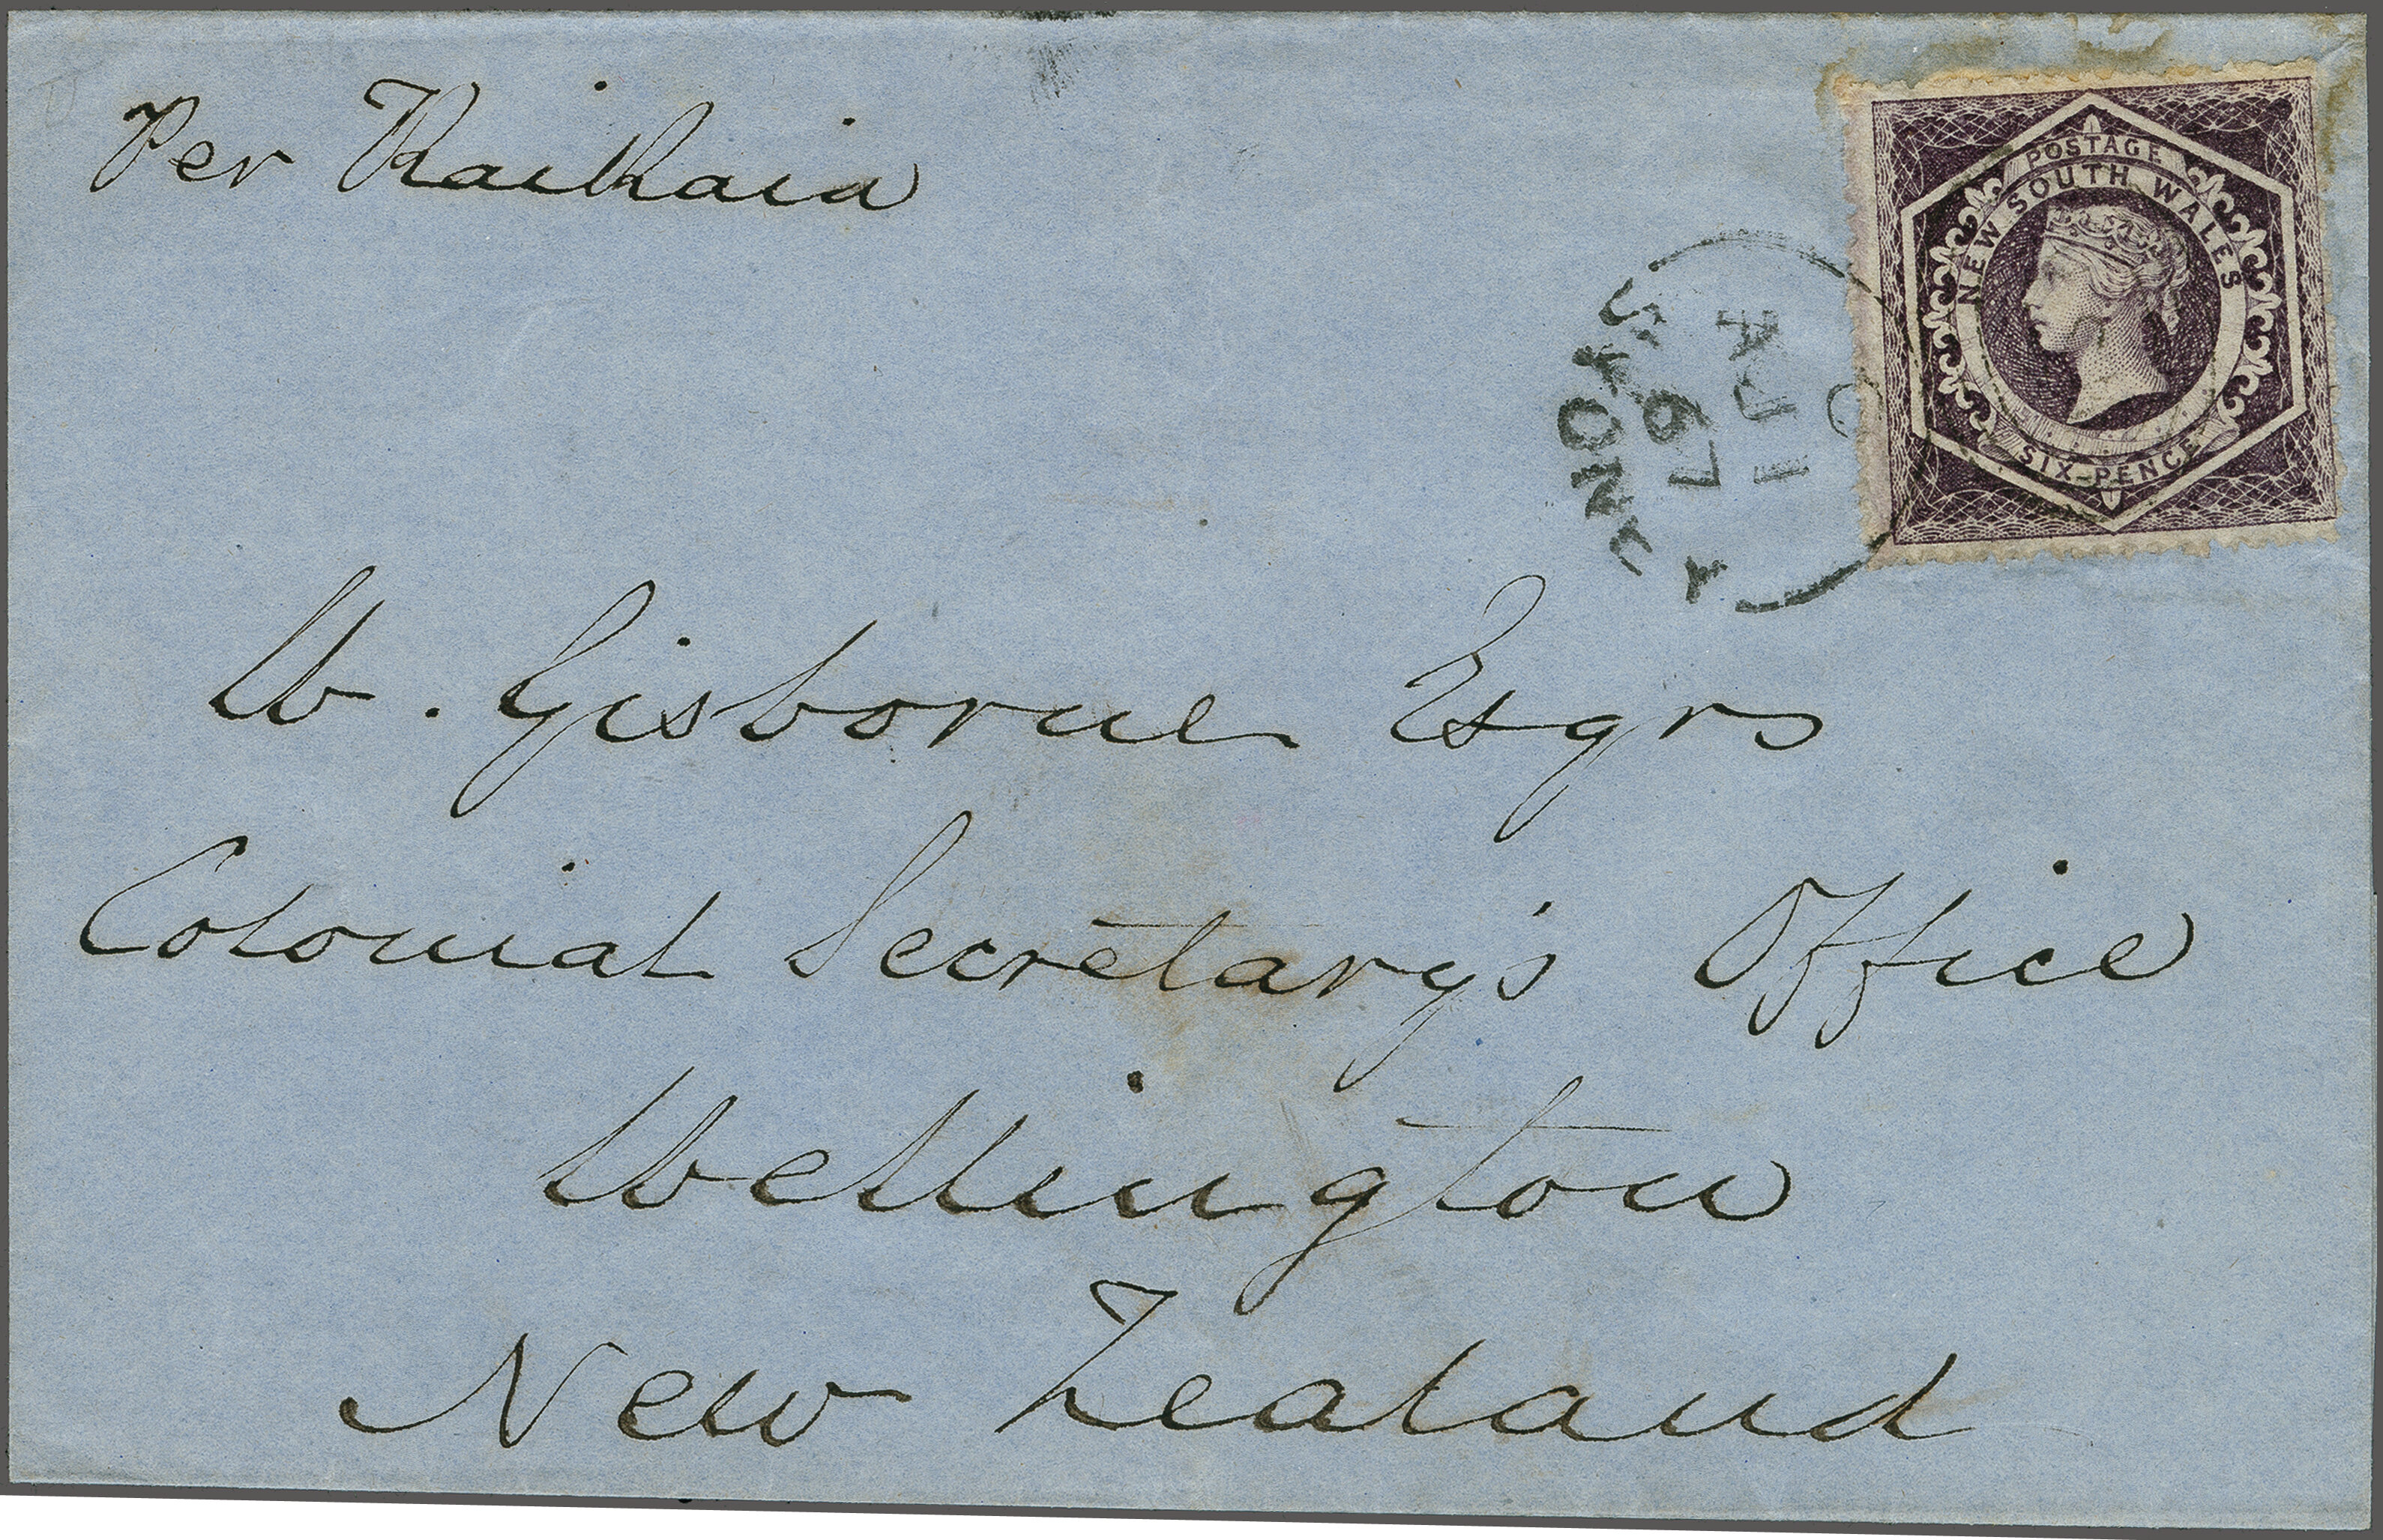 Per Kaikaia
POSTAGE
NEW SOUTH WALES
SIX PENCE
SYDNEY
11
67
W. Gisborne Esqre
Colonial Secretary's Office
Wellington
New Zealand